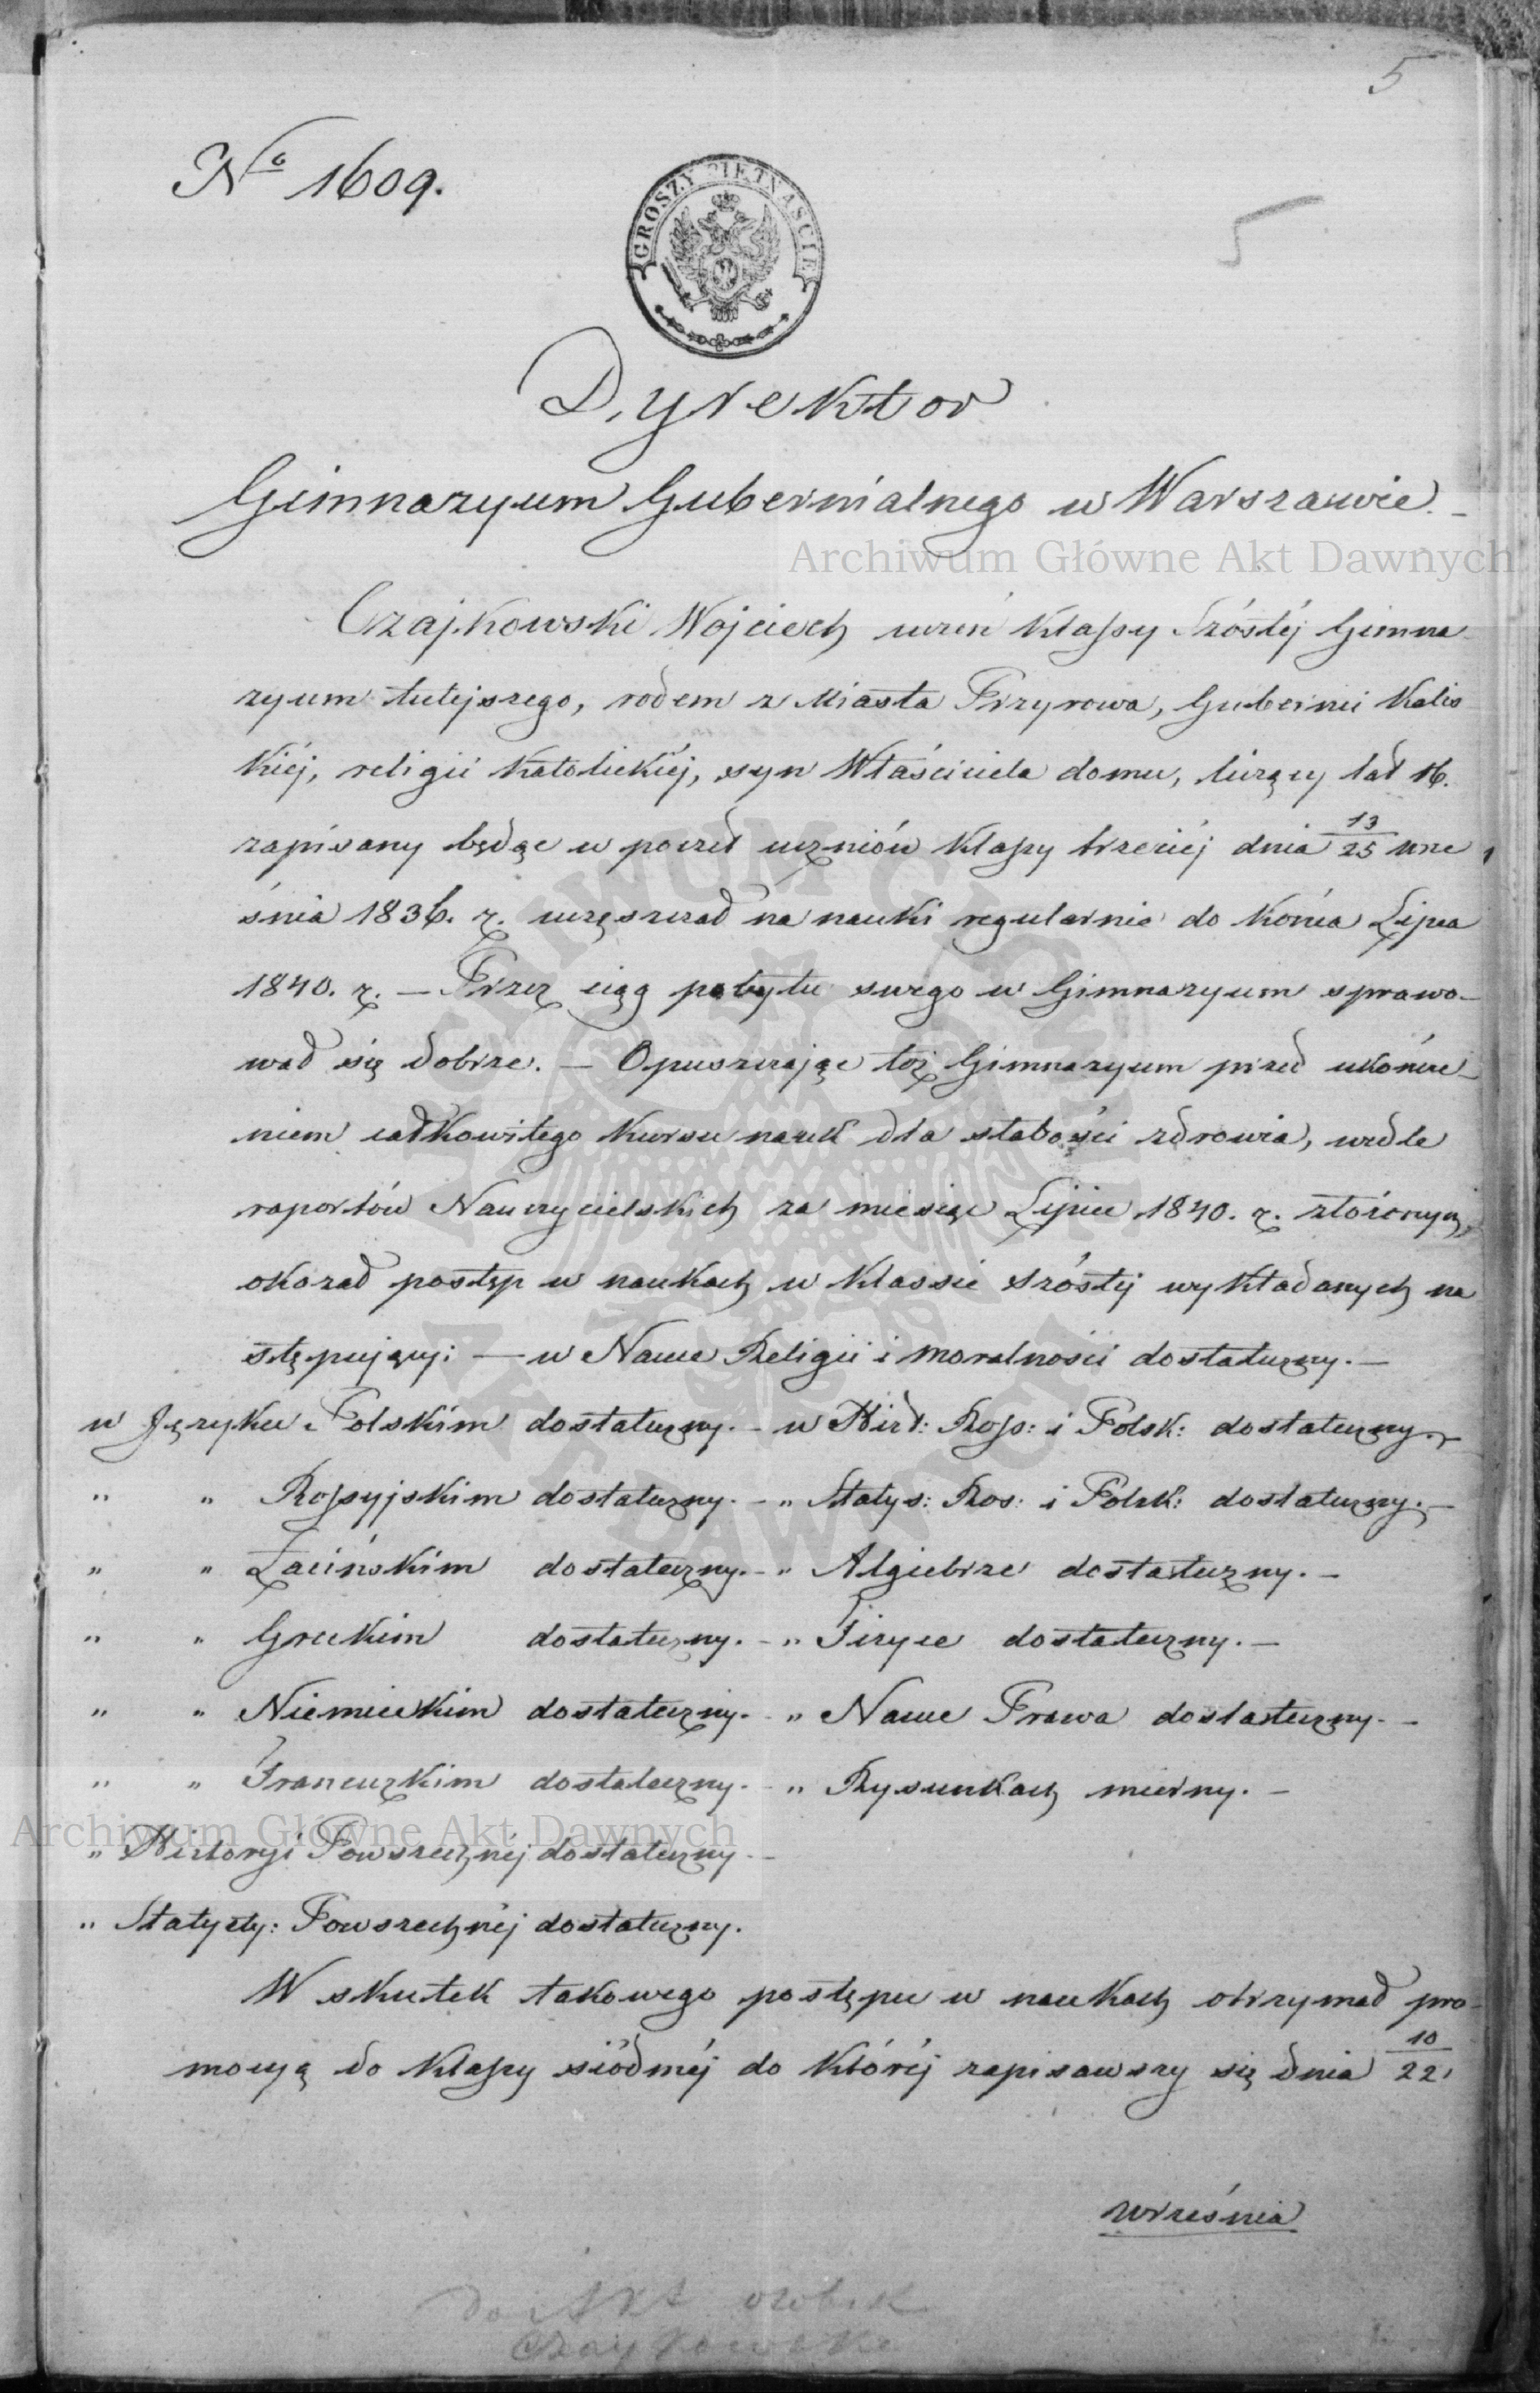 5
No 1609.
GROSZY PIĘTNAŚCIE
5
Dyrektor
Gimnazyum Gubernialnego w Warszawie. –
Archiwum Główne Akt Dawnych
Czajkowski Wojciech uczeń Klassy Szóstéj Gimna-
zyum tutejszego, rodem z Miasta Przyrowa, Gubernii Kalis-
kiéj, religii Katolickiéj, syn Właściciela domu, liczący lat 16.
zapisany będąc w poczet uczniów Klassy trzeciéj dnia 13/25 wrze
śnia 1836. r. uczęszczał na nauki regularnie do Końca Lipca
1840. r. – Przez ciąg pobytu swego w Gimnazyum sprawo-
wał się dobrze. – Opuszczając toż Gimnazyum przed ukończe-
niem całkowitego Kursu nauk dla słabości zdrowia, wedle
raportów Nauczycielskich za miesiąc Lipiec 1840. r. złożonych,
okazał postęp w naukach w Klassie szóstéj wykładanych na
stępujący: — w Nauce Religii i Moralności dostateczny. –
w Języku Polskim dostateczny. – w Hist: Ross: i Polsk: dostateczny. –
" " Rossyjskim dostateczny. – " Statys: Ros: i Polsk: dostateczny. –
" " Łacińskim dostateczny. – " Algiebrze dostateczny. –
" " Greckim dostateczny. – " Fizyce dostateczny. –
" " Niemieckim dostateczny. – " Nauce Prawa dostateczny. –
" " Francuzkim dostateczny. – " Rysunkach mierny. –
Archiwum Główne Akt Dawnych
" Historyi Powszechnéj dostateczny. –
" Statysty: Powszechnéj dostateczny.
W skutek takowego postępu w naukach otrzymał pro-
mocyą do Klassy siódméj do któréj zapisawszy się dnia 10/22
września
Do Akt osobist
Czaykowski
ARCHIWUM GŁÓWNE
AKT DAWNYCH